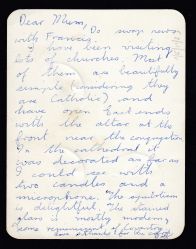 Dear Mum,
Do swop news
with Francis.
I have been visiting
lots of churches. Most
of them are beautifully
simple (considering they
are Catholic) and
have open East ends
with the altar at the
front near the congregation
In the cathedral it
was decorated as far as
I could see with
two candles and a
microphone. The symbolism
is delightful. The stained
glass is mostly modern,
some reminiscent of Coventry
Love &